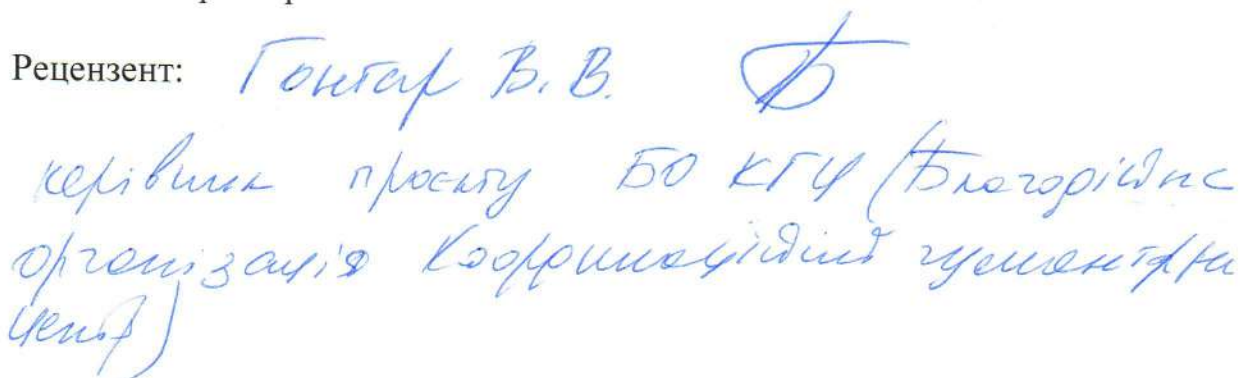 Рецензент: Гонтар В. В.
керівник проєкту БО КГЦ (Благодійна
організація Координаційний гуманітарний
центр)